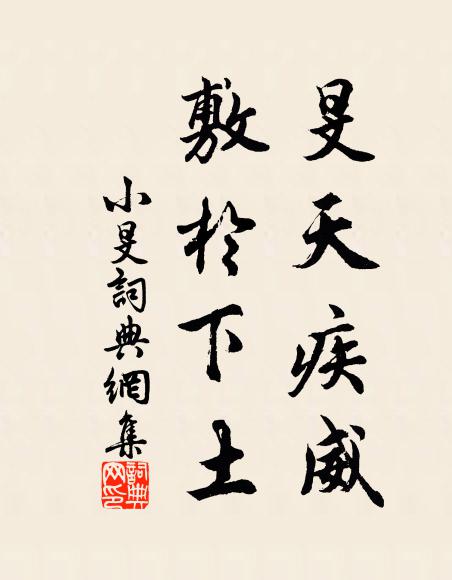 旻天疾威
敷於下土
小旻詞典網集
詞典網印